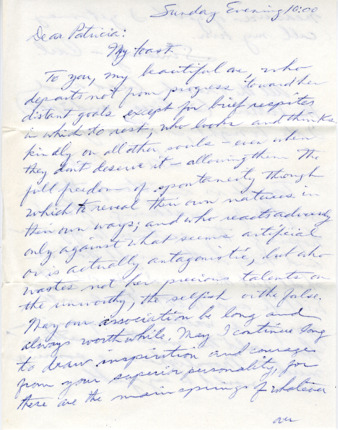 Sunday Evening 10:00
Dear Patricia:
My toast
To you, my beautiful one, who
departs not from progress toward her
distant goals except for brief respites
in which to rest, who looks and thinks
kindly on all other souls - even when
they don't deserve it - allowing them the
full freedom of spontaneity through
which to reveal their own natures in
their own ways; and who reacts adversely
only against what seems artificial
or is actually antagonistic, but who
wastes not her precious talents on
the unworthy, the selfish or the false.
May our association be long and
always worthwhile. May I continue long
to draw inspiration and courage
from your superior personality, for
these are the main springs of whatever
over